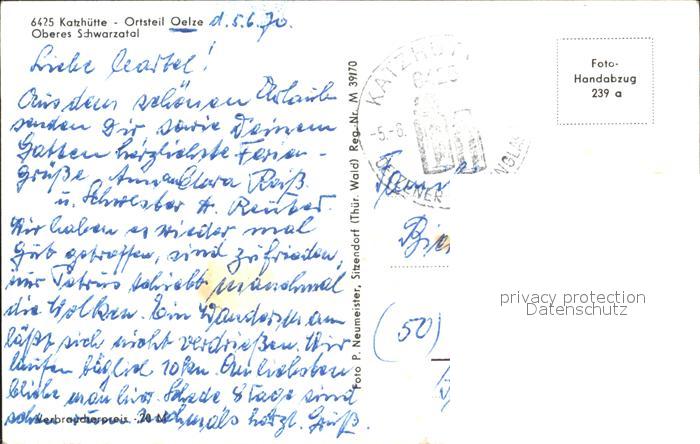 6425 Katzhütte - Ortsteil Oelze d. 5.6.70.
Oberes Schwarzatal
Liebe
Aus dem schönen Urlaub
senden Dir sowie Deinem
Gatten herzlichste Ferien-
Grüße Anna Clara Raiß
u. Schwester A. Reuter.
Wir haben es wieder mal
gut getroffen, sind zufrieden,
nur Petrus schiebt manchmal
die Wolken. Ein Wandersmann
läßt sich nicht verdrießen. Wir
laufen täglich 10 km. Am liebsten
bliebe man hier. Schade 8 Tage sind
schon Nochmals herzl. Grüß.
Verbraucherpreis -,20 M
Foto P. Neumeister, Sitzendorf (Thür. Wald) Reg.-Nr. M 39/70
KATZHÜTTE
6425
-5.-6.
Foto-
Handabzug
239 a
(50)
privacy protection
Datenschutz